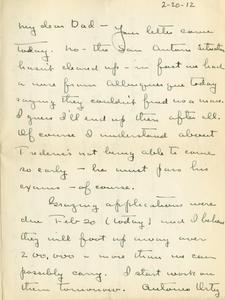 2-20-12
My dear Dad - Your letter came
today. No - the San Antonio situation
hasn't cleared up - in fact we had
a wire from Albuquerque today
saying they couldn't find us a man.
I guess I'll end up there after all.
Of course I understand about
Frederic's not being able to come
so early - he must pass his
exams - of course.
Grazing applications were
due Feb 20 (today) and I believe
they will foot up away over
200,000 - more than we can
possibly carry. I start work on
them tomorrow. Antonio Ortiz